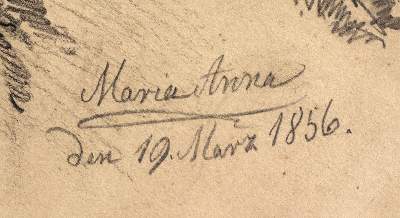 Maria Anna
den 19. März 1856.